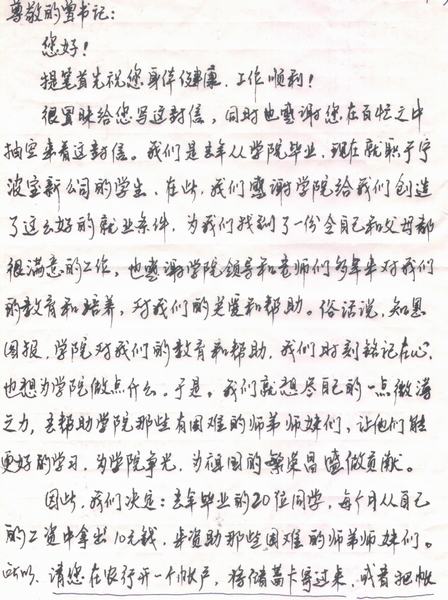 尊敬的曾书记:
您好!
提笔首先祝您身体健康、工作顺利!
很冒昧给您写这封信,同时也感谢您在百忙之中
抽空来看这封信。我们是去年从学院毕业,现在就职于宁
波宝新公司的学生,在此,我们感谢学院给我们创造
了这么好的就业条件,为我们找到了一份令自己和父母都
很满意的工作,也感谢学院领导和老师们多年来对我们
的教育和培养,对我们的关爱和帮助。俗话说,知恩
图报,学院对我们的教育和帮助,我们时刻铭记在心,
也想为学院做点什么。于是,我们就想尽自己的一点微薄
之力,去帮助学院那些有困难的师弟师妹们,让他们能
更好的学习,为学院争光,为祖国的繁荣昌盛做贡献。
因此,我们决定:去年毕业的20位同学,每个月从自己
的工资中拿出10元钱,来资助那些困难的师弟师妹们。
所以,请您在农行开一个帐户,将储蓄卡寄过来,或者把帐